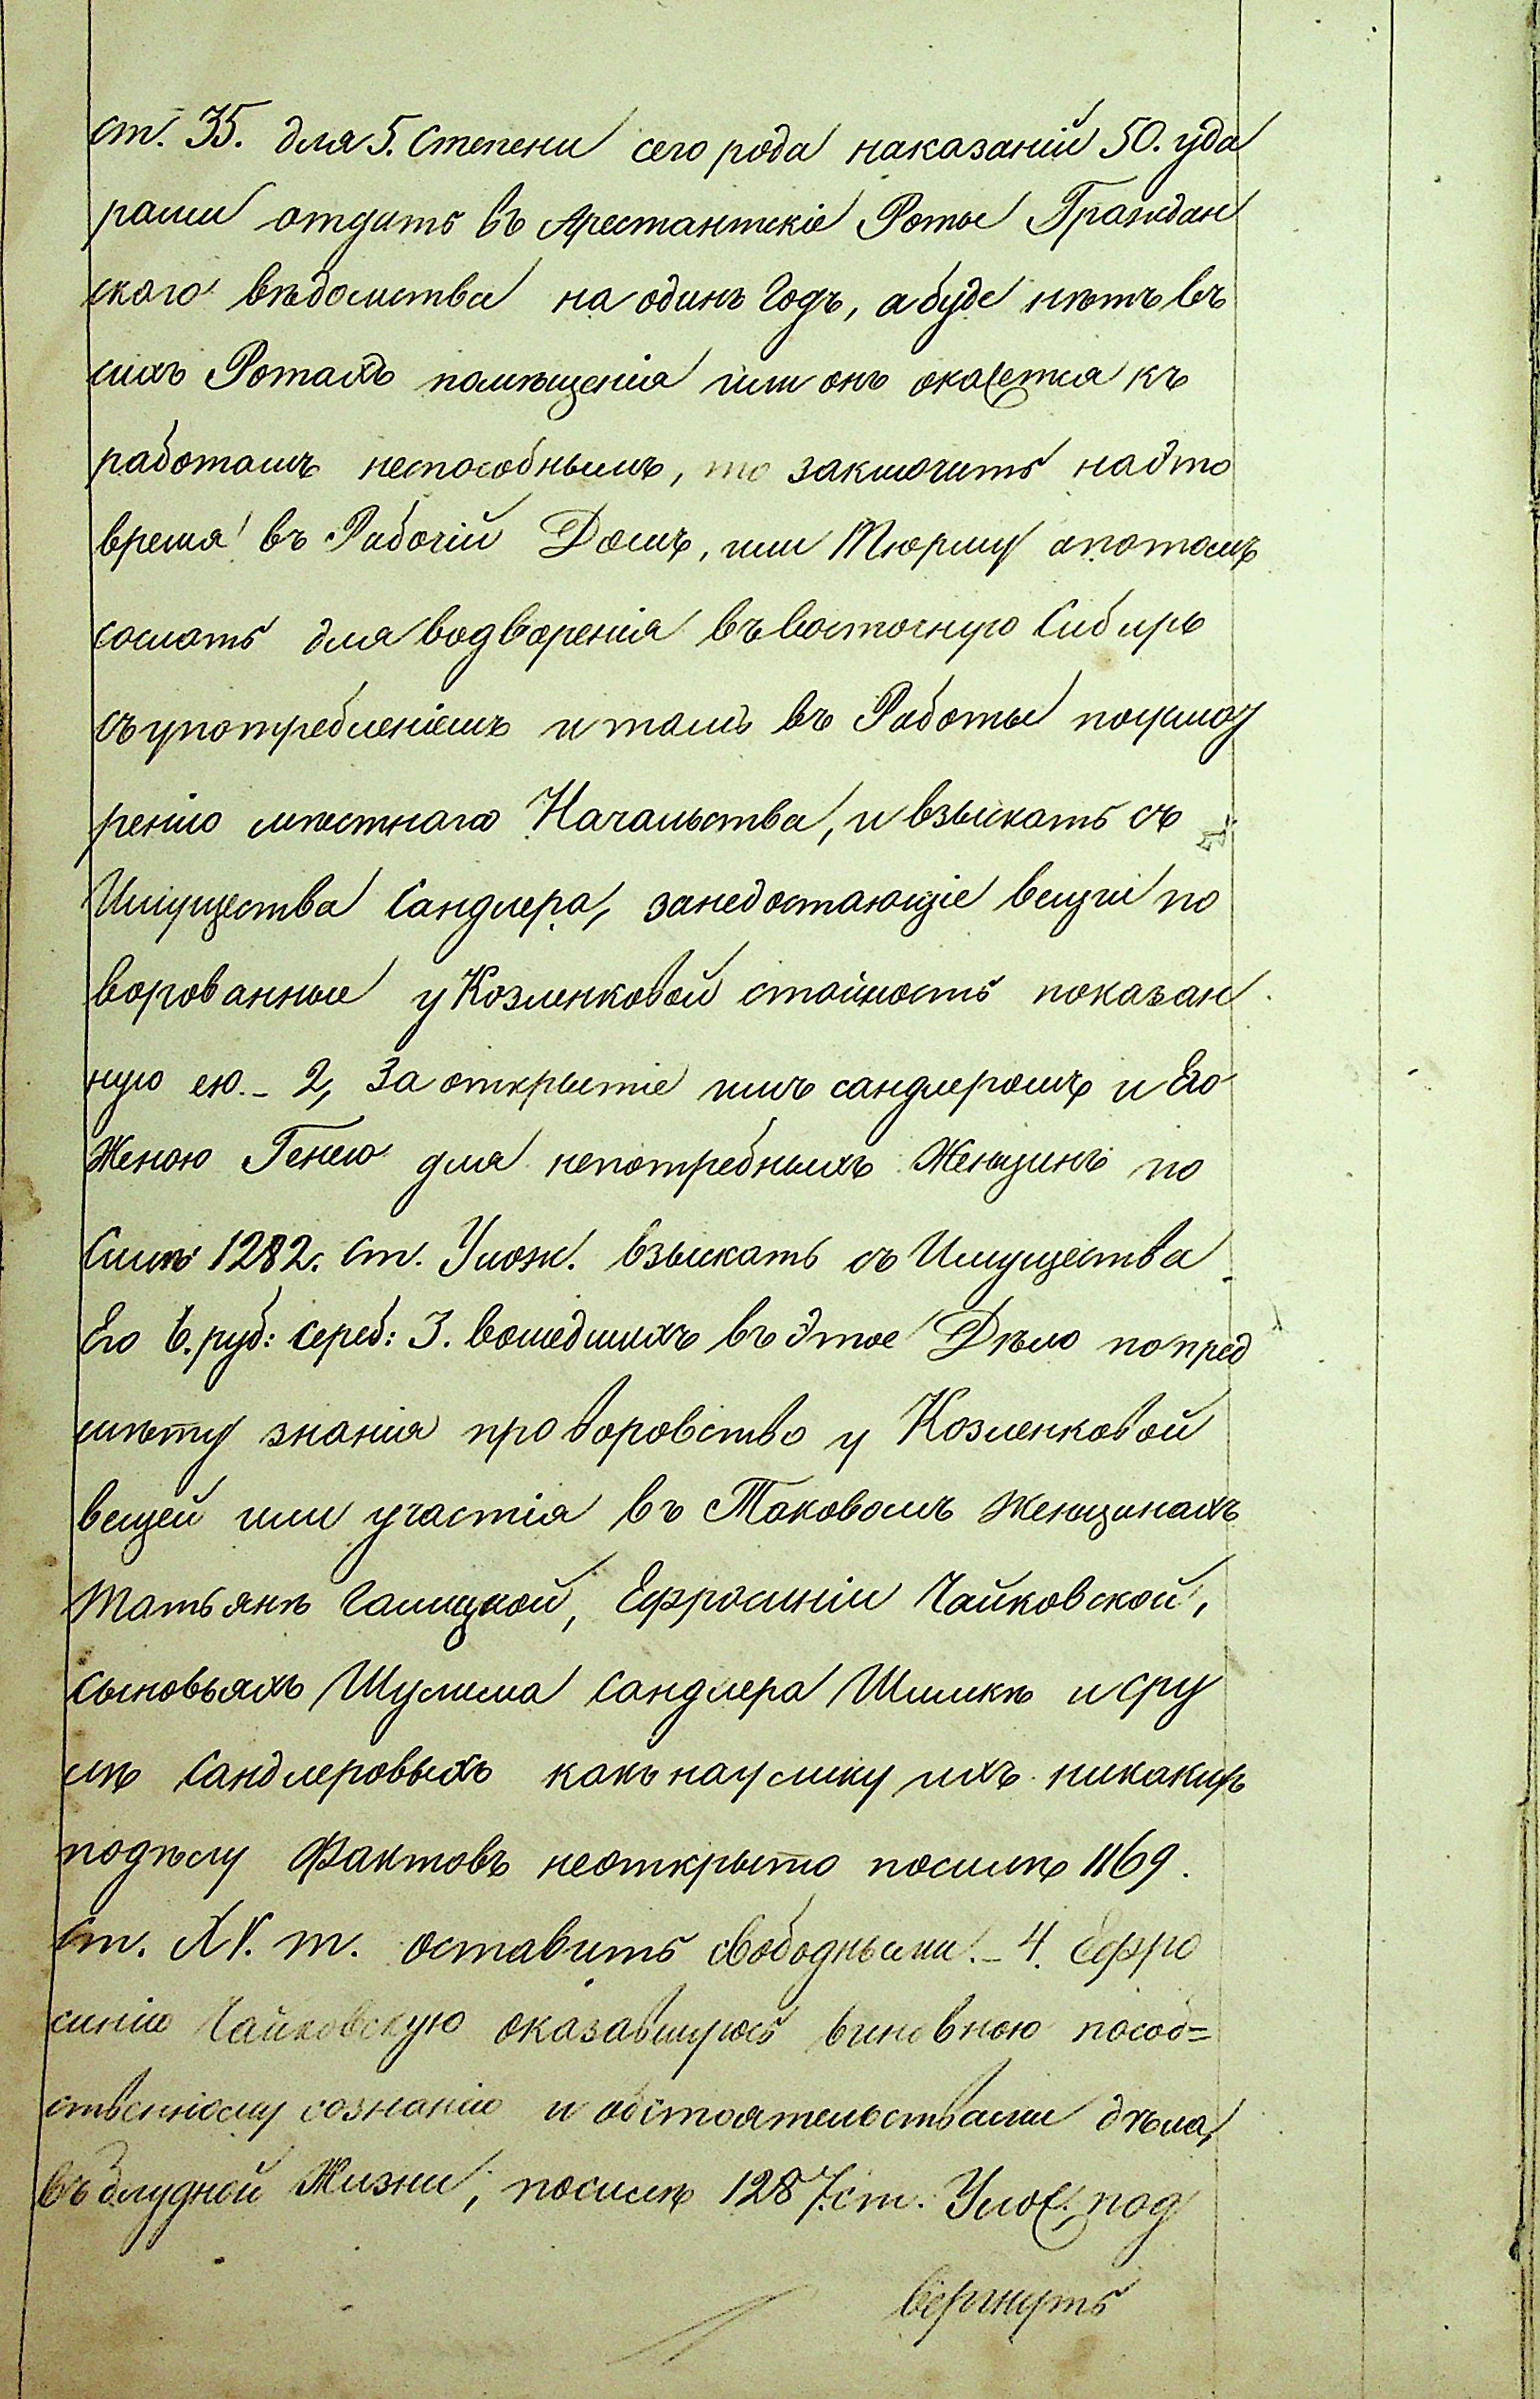 ст. 35. для 5. Степени сего рода наказаній 50. уда
рами отдать въ Арестантскіе Роты Граждан
скаго вѣдомства на одинъ годъ, а буде нѣтъ въ
сихъ Ротахъ помѣщенія или онъ окажется къ
работамъ неспособнымъ, то заключить на это
время въ Рабочій Домъ, или Тюрму а потомъ
сослать для водворенія въ восточную Сибирь
съ употребленіемъ и тамъ въ Работы по усмот
рению мѣстнаго Начальства, и взыскать съ
Имущества Сандлера, за недостающіе вещи по
ворованные у Козленковой стоимость показан
ную ею. - 2, За открытіе имъ сандлеромъ и Его
Женою Генею для непотребныхъ Женщинъ по
Силѣ 1282. ст. Улож. взыскать съ Имущества
Его 6. руб: сереб: 3. вошедшихъ въ этое Дѣло по пред
мѣту знанія про воровство у Козленковой
вещей или участія въ Таковомъ Женщинахъ
Татьянѣ Галицкой, Ефросиніи Чайковской,
сыновьяхъ Шулима Сандлера Шимкѣ и Сру
лѣ Сандлеровыхъ какъ на улику ихъ никакихъ
по дѣлу Фактовъ не открыто по силѣ 1169.
ст. XV. т. оставить свободными. - 4. Ефро
синію Чайковскую оказавшуюсь виновною по соб=
ственному сознанію и обстоятельствами дѣла,
въ блудной Жизни, по силѣ 1287. ст. Улож. под
вергнуть